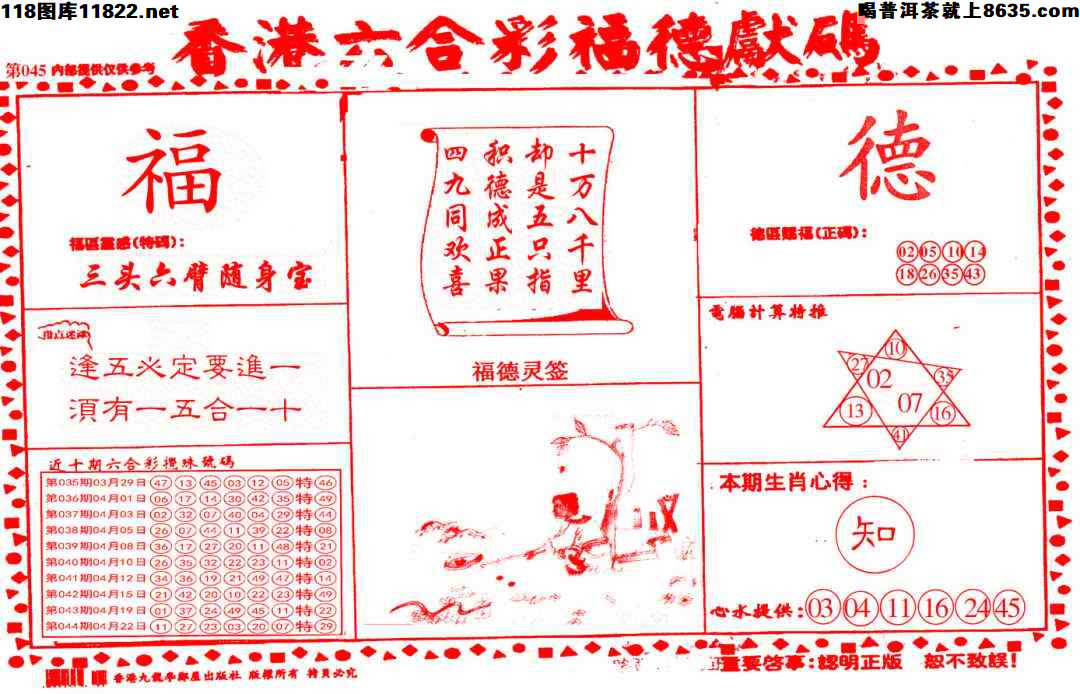 118图库11822.net
喝普洱茶就上8635.com
香港六合彩福德獻碼
第045 内部提供仅供参考
福
福區靈感(特碼):
三头六臂随身宝
指点迷津
逢五必定要進一
須有一五合一十
近十期六合彩攪珠號碼
第035期03月29日 47 13 45 03 12 05 特 46
第036期04月01日 06 17 14 30 42 35 特 49
第037期04月03日 02 32 07 40 04 29 特 44
第038期04月05日 26 07 44 11 39 22 特 08
第039期04月08日 36 17 27 20 11 48 特 21
第040期04月10日 26 35 32 22 23 11 特 02
第041期04月12日 34 36 19 21 49 47 特 14
第042期04月15日 21 42 20 10 22 23 特 49
第043期04月19日 01 37 24 49 45 11 特 22
第044期04月22日 11 27 23 03 20 07 特 29
十万八千里
却是五只指
积德成正果
四九同欢喜
福德灵签
德
德區賜福(正碼):
02 05 10 14
18 26 35 43
電腦計算特推
10
27 02 33
13 07 16
41
本期生肖心得:
知
心水提供: 03 04 11 16 24 45
香港九龍 出版社 版權所有 拷貝必究
重要啓事:認明正版 恕不致誤!